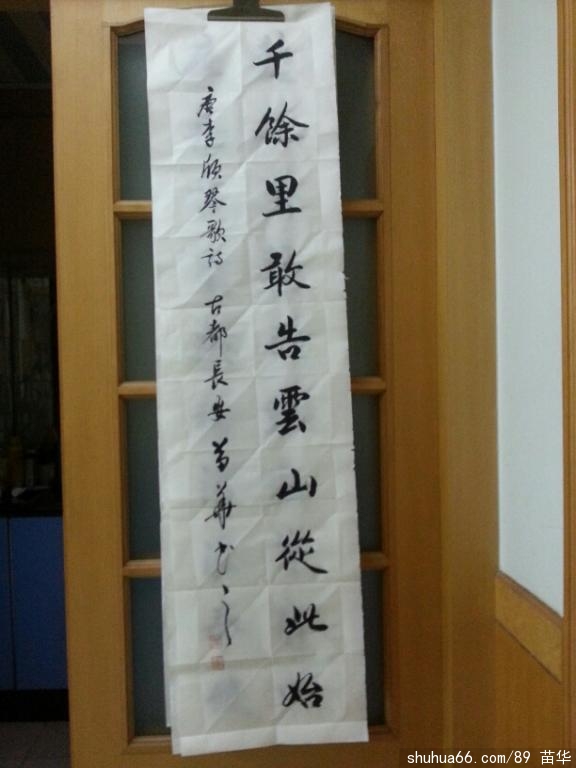 千餘里敢告雲山從此始
唐李頎琴歌詩 古都長安苗華书之
shuhua66.com/89 苗华